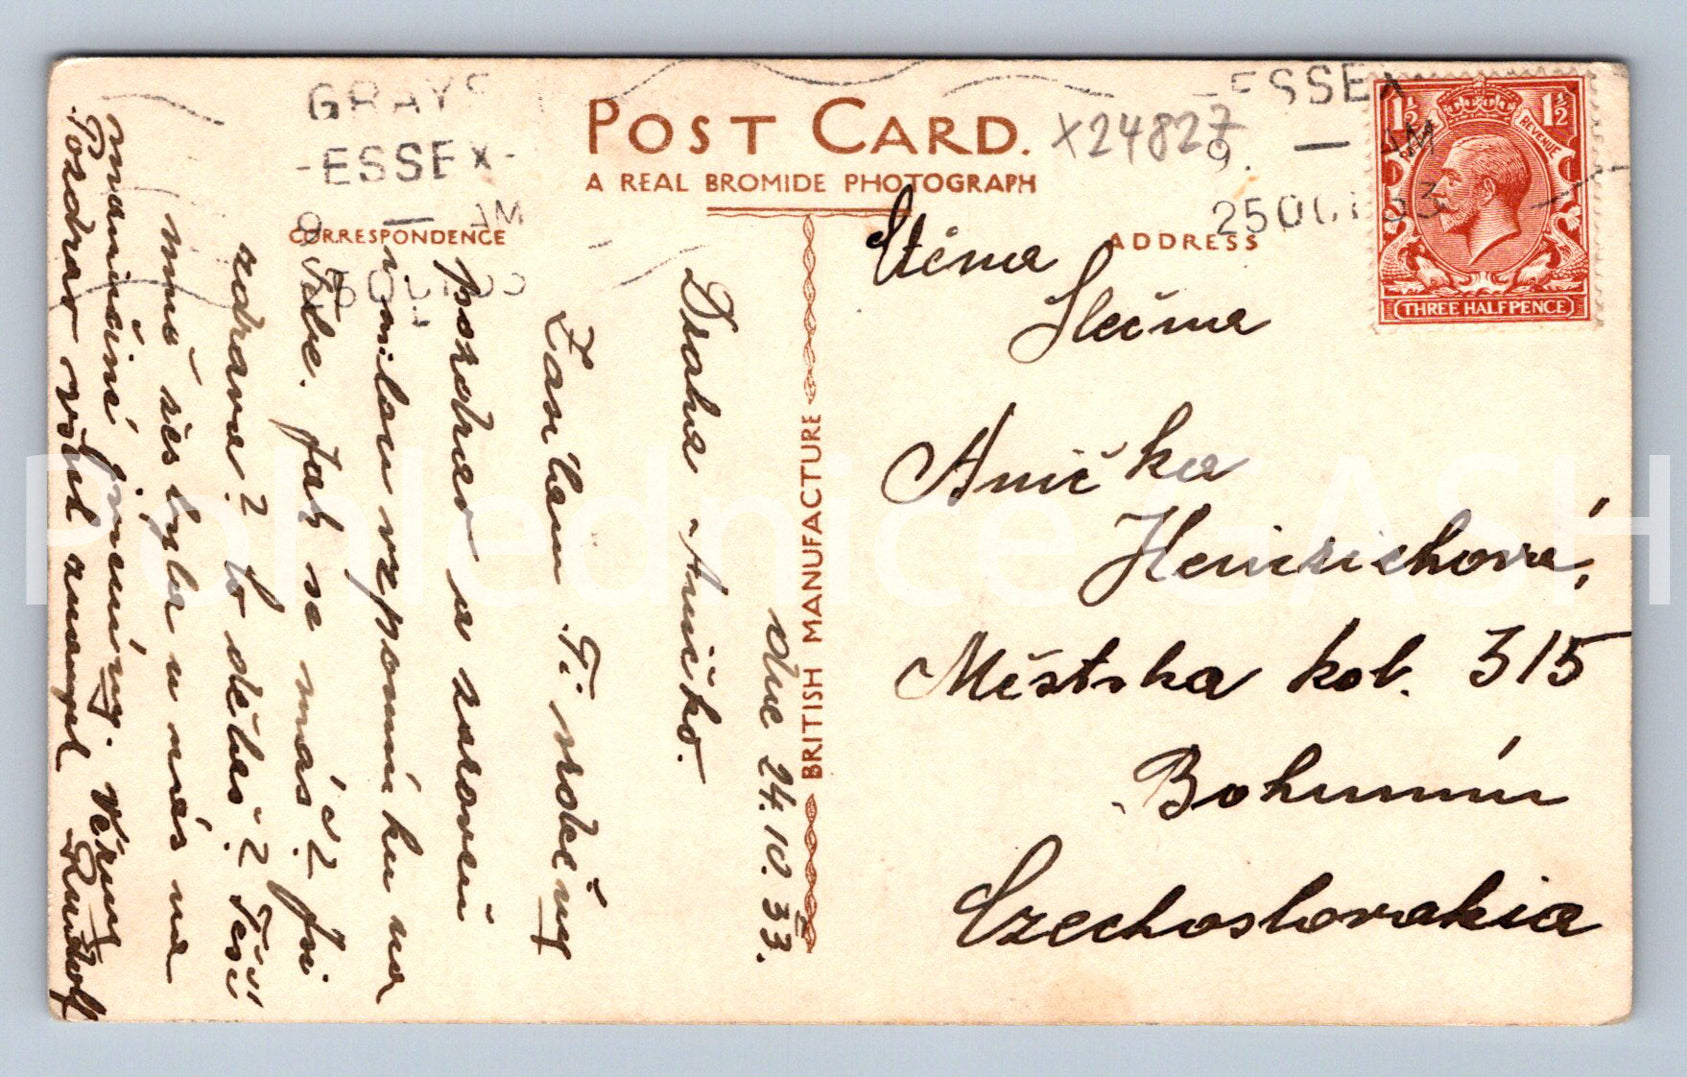 GRAYS
-ESSEX-
9 — AM
25 OCT 33
POST CARD.
A REAL BROMIDE PHOTOGRAPH
X24827
-ESSEX
9. — AM
25 OCT 33
1½ 1½
REVENUE
THREE HALFPENCE
CORRESPONDENCE
ADDRESS
BRITISH MANUFACTURE
dne 24.10.33.
Draha Aničko.
Zasílám Ti srdečný
pozdrav a zároveň
vzpomínku na
Tebe. Jak se máš? Jsi
zdravá? Co děláš? Těší
mně žes byla u nás na
maminčiné jmeniny. Věrný
Pozdrav všem Rudolf
Ctěna
Slečna
Anička
Heinrichová,
Městska kol. 315
Bohumín
Czechoslovakia
Pohlednice GASH